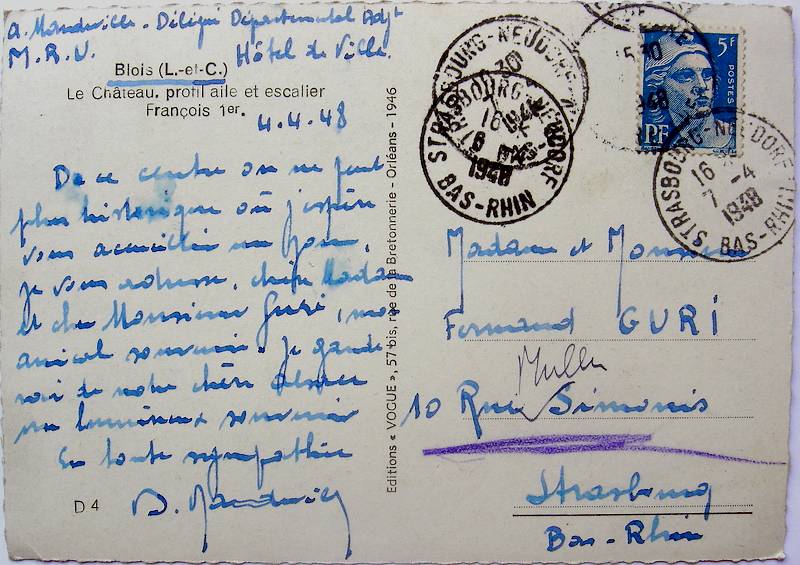 A. Mandeville - Délégué Départemental Adjt
M.R.U. Hôtel de Ville.
Blois (L.-et-C.)
Le Château, profil aile et escalier
François 1er.
4.4.48
De ce centre on ne peut
plus historique où j'espère
vous accueillir un jour,
je vous adresse, chère Madame
et cher Monsieur Guri, mon
amical souvenir. Je garde-
rai de notre chère Alsace
un lumineux souvenir
En toute sympathie
A. Mandeville
D 4
Editions « VOGUE », 57 bis, rue de la Bretonnerie - Orléans - 1946
STRASBOURG-NEUDORF
STRASBOURG-NEUDORF
16
6
1948
BAS-RHIN
5F
POSTES
RF
STRASBOURG-NEUDORF
16
7 -4
1948
BAS-RHIN
Madame et Monsieur
Fernand GURI
Muller
10 Rue Simonis
Strasbourg
Bas-Rhin